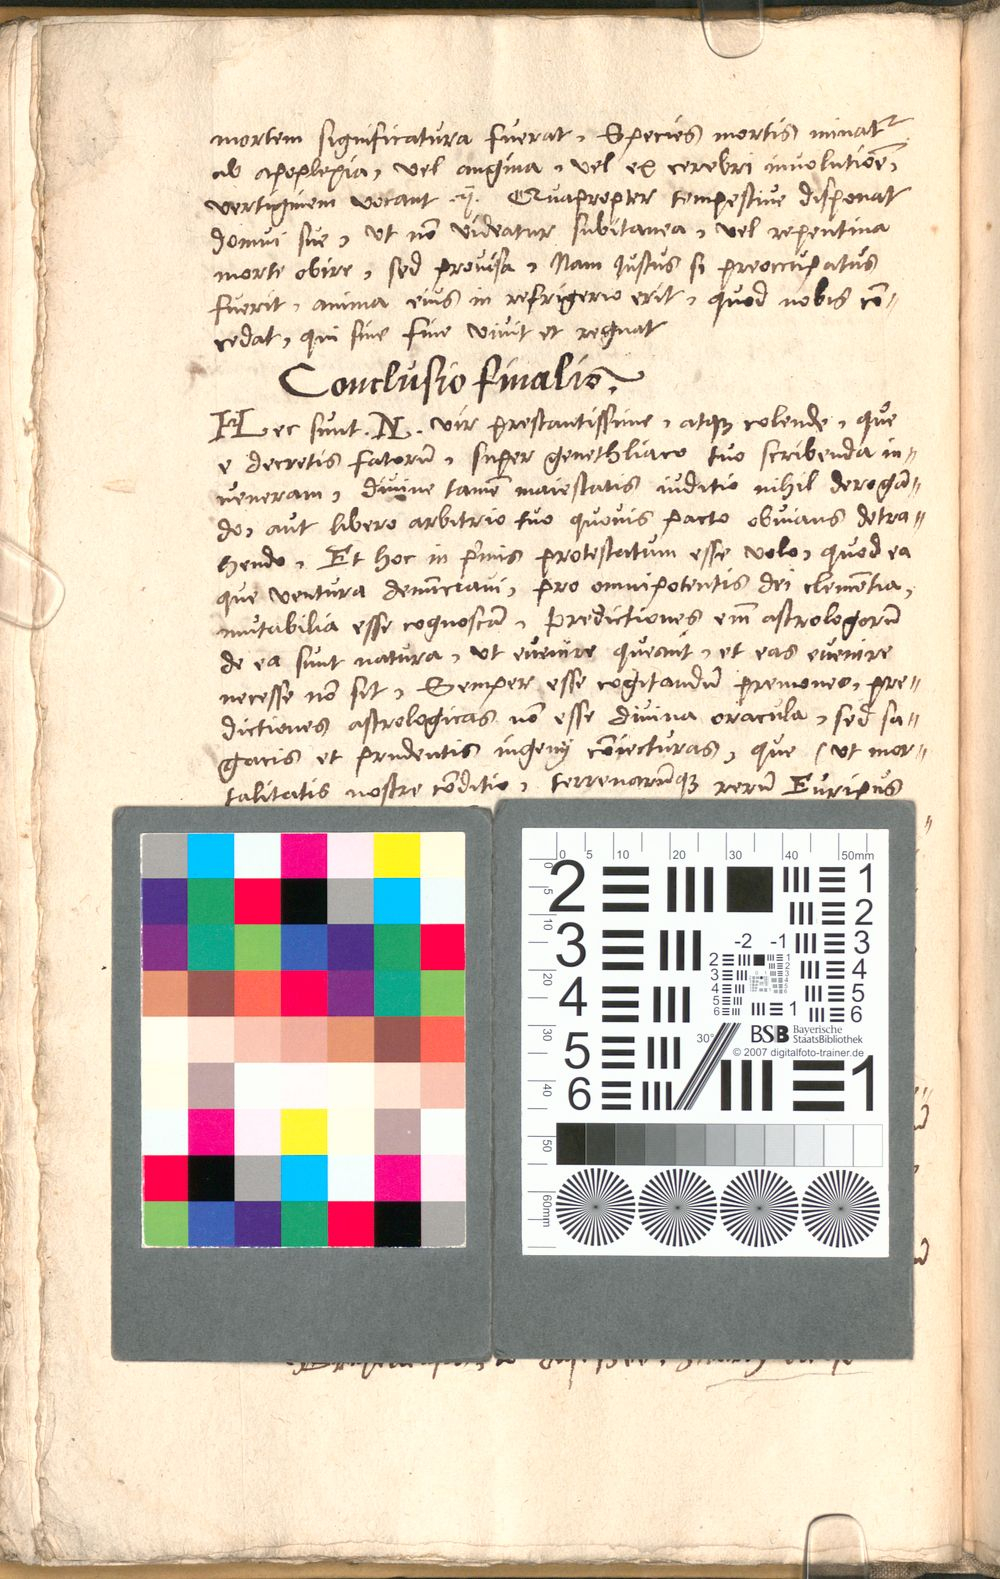 mortem significatura fuerat, Species mortis minat᷑
ab apoplexia, vel angina, vel ex cerebri inuolutiōe,
vertiginem vocant .ij. Quapropter tempestiue disponat
domui sue, vt nō videatur subitanea, vel repentina
morte obire, sed prouisa, Nam Iustus si preoccupatus
fuerit, anima eius in refrigerio erit, quod nobis cō-
cedat, qui sine fine viuit et regnat
Conclusio finalis.
Hec sunt .N. vir prestantissime, atqꝫ colende, que
e decretis fatorū, super genethliaco tuo scribenda in-
veneram, diuine tamē maiestatis iuditio nihil derogā-
do, aut libero arbitrio tuo quouis pacto obuians detra-
hendo, Et hoc in p̄mis protestatum esse volo, quod ea
que ventura denūciaui, pro omnipotentis dei clemētia,
mutabilia esse cognoscā, Predictiones em̄ astrologorū
de ea sunt natura, vt euenire queant, et eas euenire
necesse nō sit, Semper esse cogitandū premoneo, pre-
dictiones astrologicas nō esse diuina oracula, sed sa-
gacis et prudentis ingenij cōiecturas, que (vt mor-
talitatis nostre cōditio, terrenarūqꝫ rerū Euripus
0 5 10 20 30 40 50mm
0 5 10 20 30 40 50 60mm
2 1
2
3 3
4 4
5 5
6 6
-2 -1
2 1
3 2
4 3
5 4
6 5
6
1
30°
BSB Bayerische
StaatsBibliothek
© 2007 digitalfoto-trainer.de
1